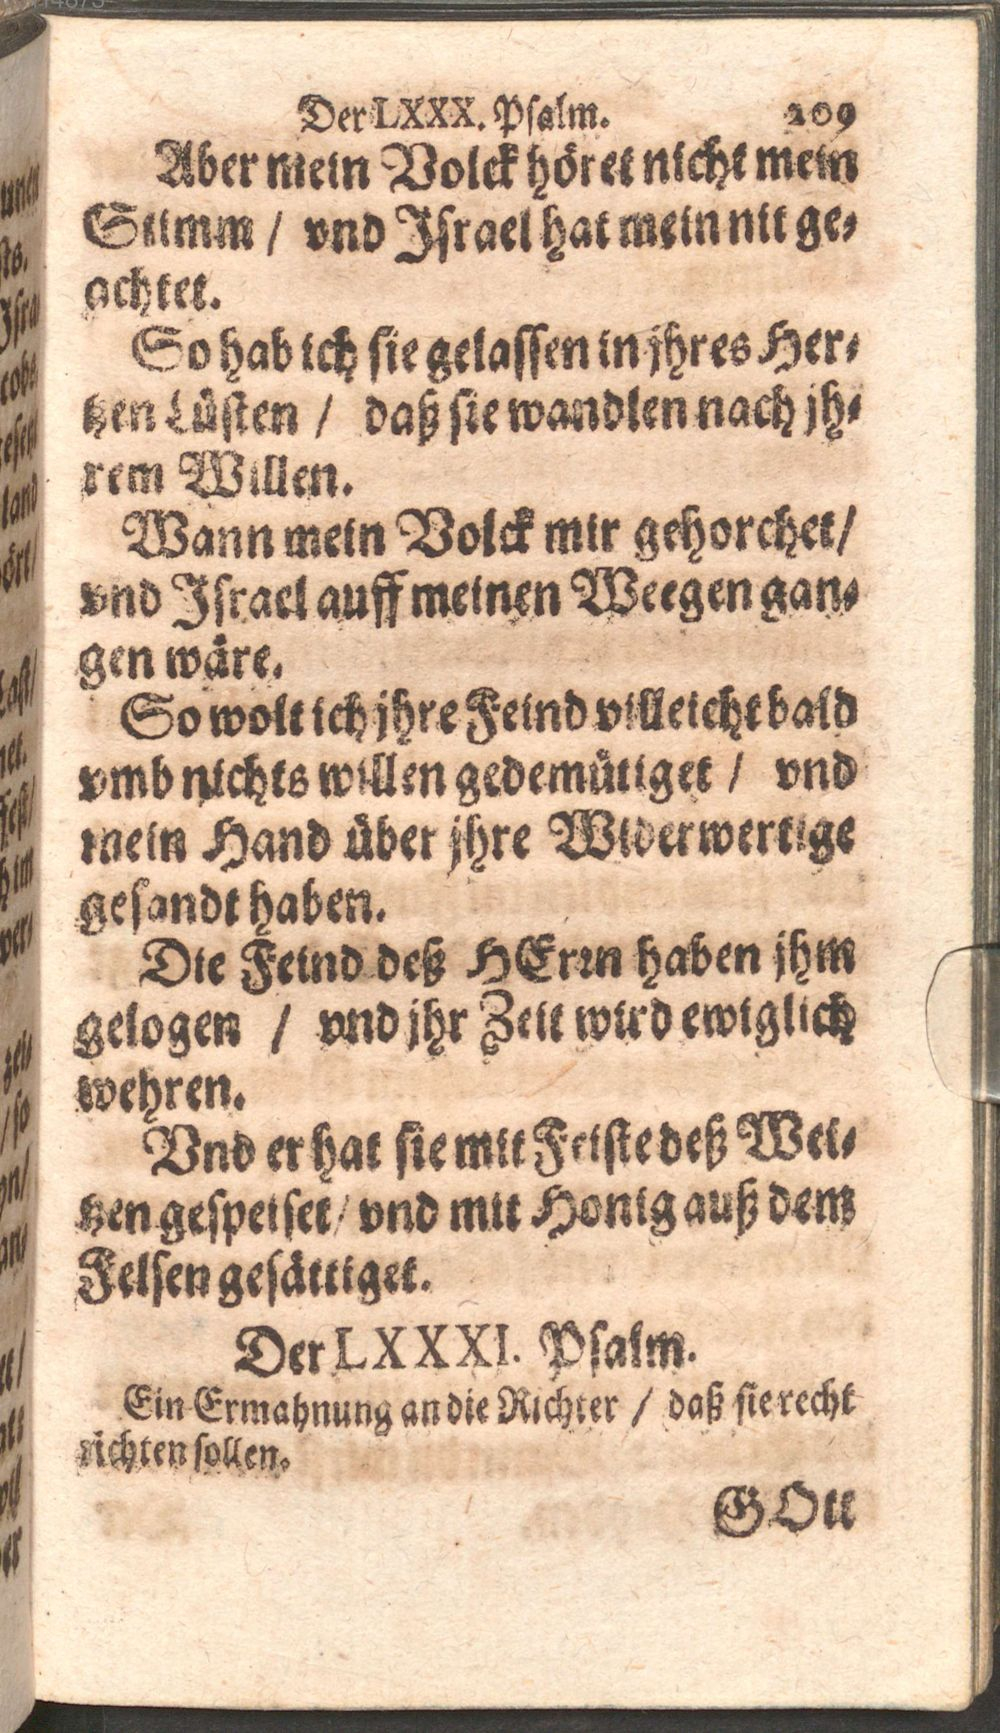 Der LXXX. Psalm. 209
Aber mein Volck höret nicht mein
Stimm / vnd Israel hat mein nit ge-
achtet.
So hab ich sie gelassen in jhres Her-
tzen Lüsten / daß sie wandlen nach jh-
rem Willen.
Wann mein Volck mir gehorchet /
vnd Israel auff meinen Weegen gan-
gen wäre.
So wolt ich jhre Feind villeicht bald
vmb nichts willen gedemütiget / vnd
mein Hand über jhre Widerwertige
gesandt haben.
Die Feind deß HErrn haben jhm
gelogen / vnd jhr Zeit wird ewiglich
wehren.
Vnd er hat sie mit Feiste deß Wei-
tzen gespeiset / vnd mit Honig auß dem
Felsen gesättiget.
Der LXXXI. Psalm.
Ein Ermahnung an die Richter / daß sie recht
richten sollen.
GOtt